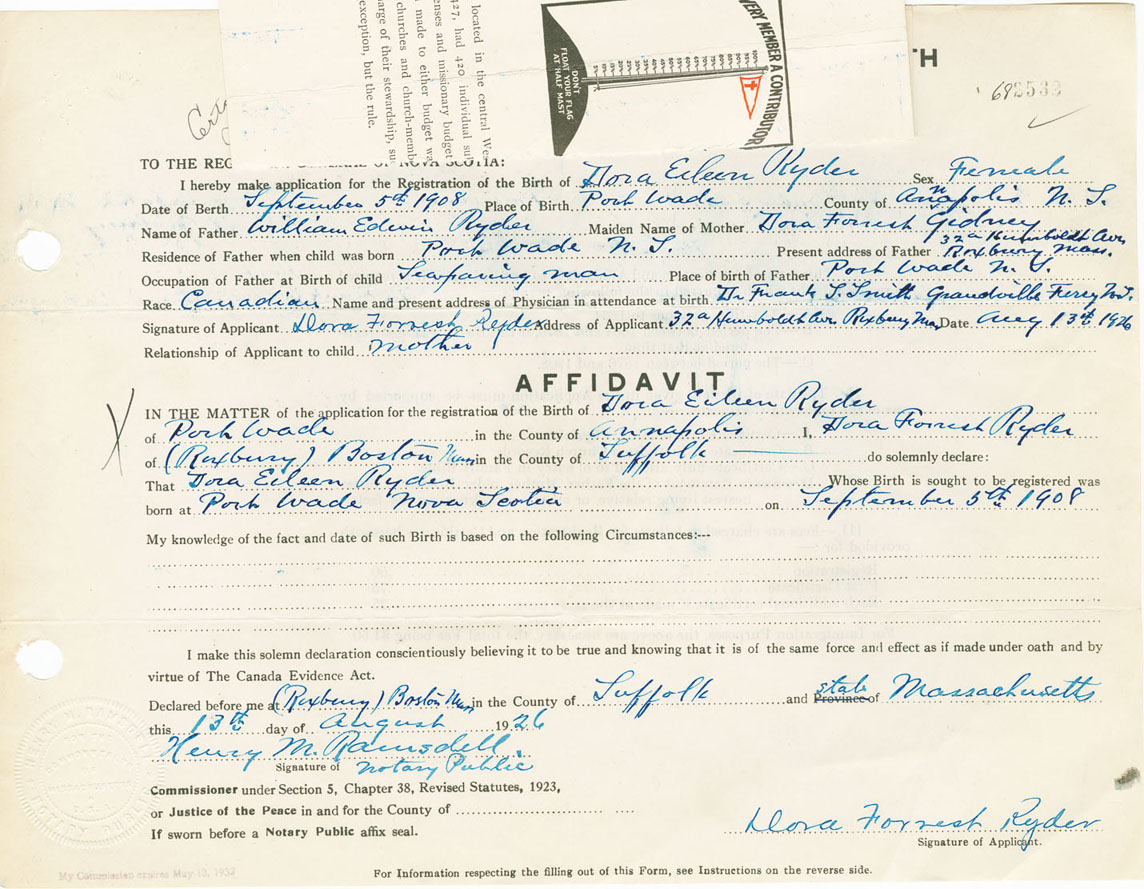 located in the central Wes
427, had 420 individual su
enses and missionary budget
made to either budget wa
churches and church-memb
arge of their stewardship, su
exception, but the rule.
DON'T
FLOAT YOUR FLAG
AT HALF MAST
VERY MEMBER A CONTRIBUTOR
TH
682533
TO THE REG NOVA SCOTIA:
I hereby make application for the Registration of the Birth of Dora Eileen Ryder Sex Female
Date of Berth September 5th 1908 Place of Birth Port Wade County of Annapolis N. S.
Name of Father William Edwin Ryder Maiden Name of Mother Dora Forrest Gidney
Residence of Father when child was born Port Wade N. S. Present address of Father 32a Humboldt Ave Roxbury Mass.
Occupation of Father at Birth of child Seafaring man Place of birth of Father Port Wade N. S.
Race Canadian Name and present address of Physician in attendance at birth. Dr Frank S. Smith Grandville Ferry N.S.
Signature of Applicant Dora Forrest Ryder Address of Applicant 32a Humboldt Ave Roxbury Mass Date Aug 13th 1926
Relationship of Applicant to child Mother
AFFIDAVIT
IN THE MATTER of the application for the registration of the Birth of Dora Eileen Ryder
of Port Wade in the County of Annapolis I, Dora Forrest Ryder
of (Roxbury) Boston Mass in the County of Suffolk do solemnly declare:
That Dora Eileen Ryder Whose Birth is sought to be registered was
born at Port Wade Nova Scotia on September 5th 1908
My knowledge of the fact and date of such Birth is based on the following Circumstances:---
I make this solemn declaration conscientiously believing it to be true and knowing that it is of the same force and effect as if made under oath and by
virtue of The Canada Evidence Act.
Declared before me at (Roxbury) Boston Mass in the County of Suffolk and Province state of Massachusetts
this 13th day of August 1926
Henry M. Ramsdell.
Signature of Notary Public
Commissioner under Section 5, Chapter 38, Revised Statutes, 1923,
or Justice of the Peace in and for the County of
If sworn before a Notary Public affix seal.
Dora Forrest Ryder
Signature of Applicant.
My Commission expires May 13, 1932
For Information respecting the filling out of this Form, see Instructions on the reverse side.